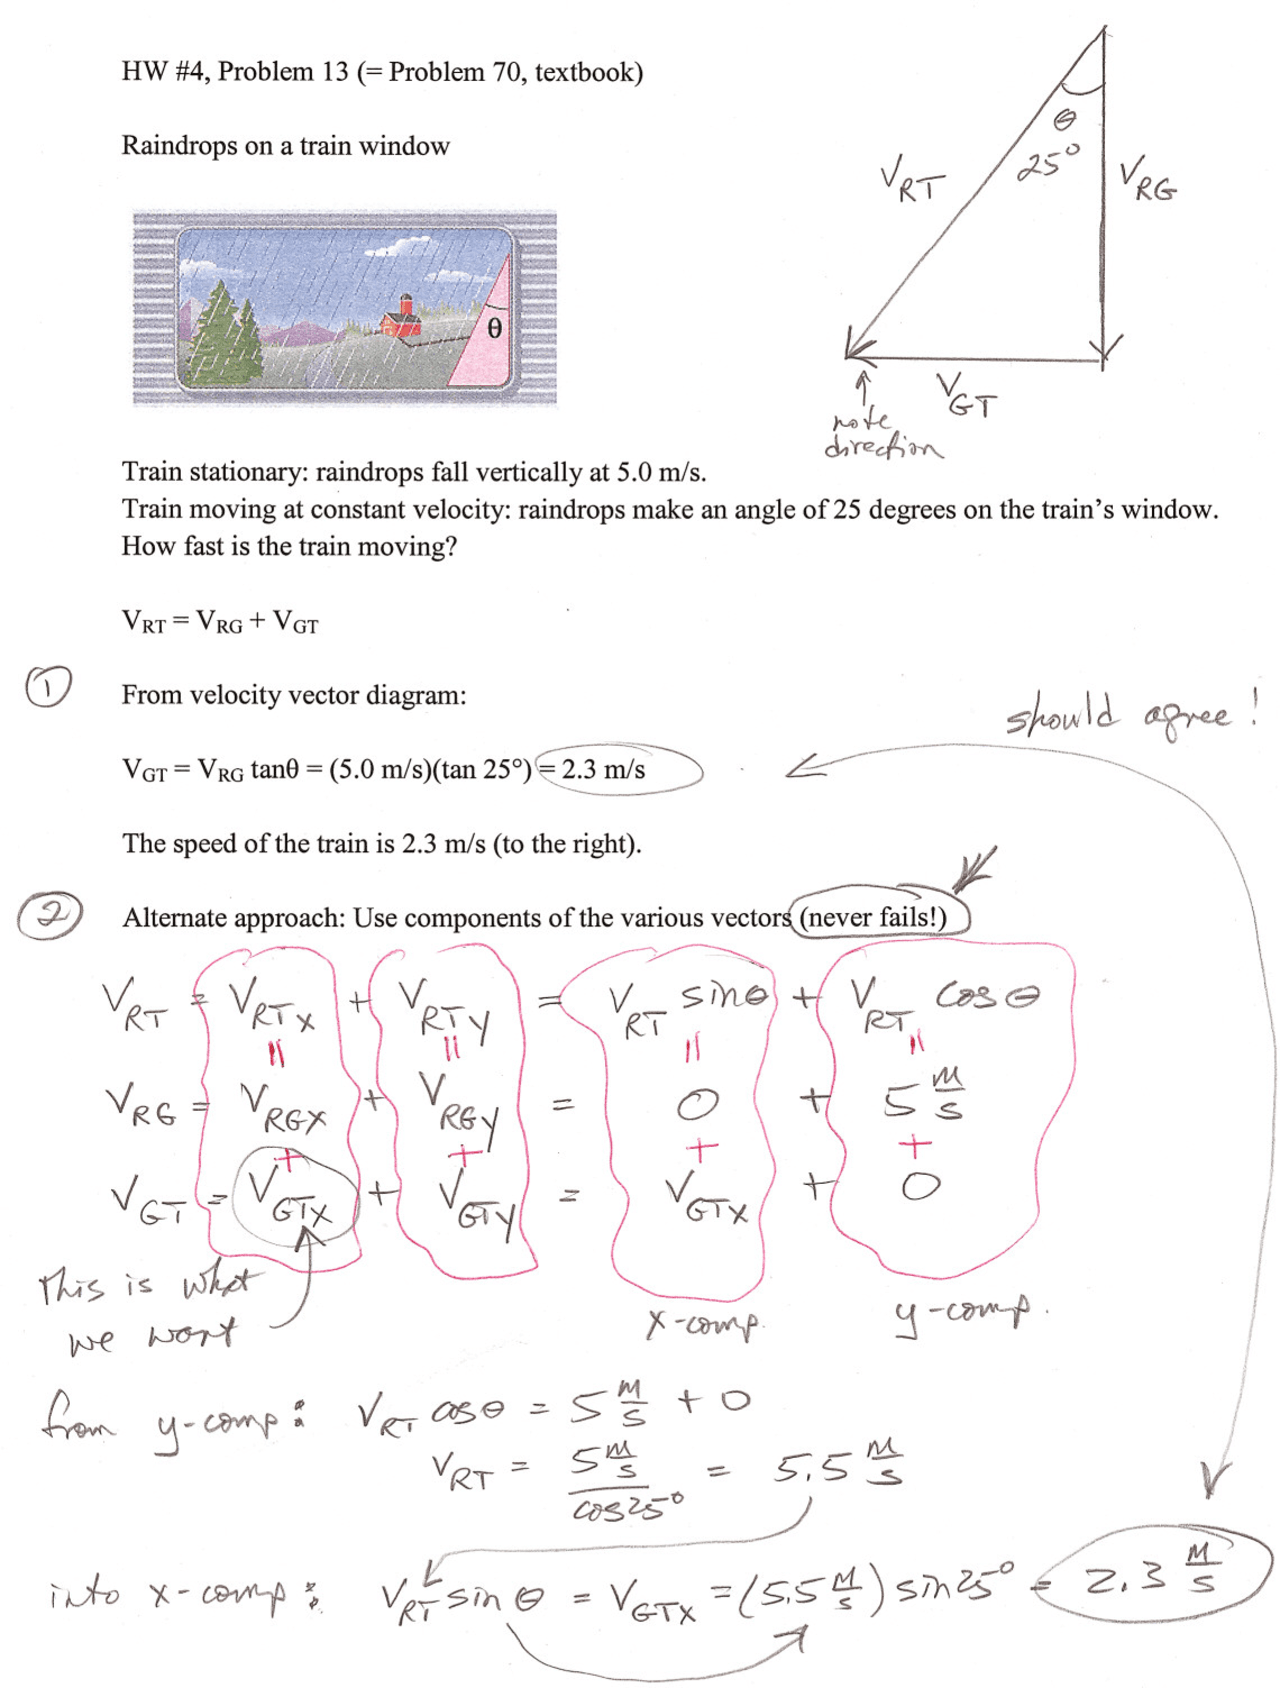 HW #4, Problem 13 (= Problem 70, textbook)
Raindrops on a train window
θ
θ
25°
V_RT
V_RG
V_GT
note
direction
Train stationary: raindrops fall vertically at 5.0 m/s.
Train moving at constant velocity: raindrops make an angle of 25 degrees on the train's window.
How fast is the train moving?
V_RT = V_RG + V_GT
① From velocity vector diagram:
should agree!
V_GT = V_RG tanθ = (5.0 m/s)(tan 25°) = 2.3 m/s
The speed of the train is 2.3 m/s (to the right).
② Alternate approach: Use components of the various vectors (never fails!)
V_RT = V_RTx + V_RTy = V_RT sinθ + V_RT cosθ
= = = =
V_RG = V_RGx + V_RGy = 0 + 5 m/s
+ + + +
V_GT = V_GTx + V_GTy = V_GTx + 0
This is what
we want
x-comp.
y-comp.
from y-comp: V_RT cosθ = 5 m/s + 0
V_RT = 5 m/s / cos25° = 5.5 m/s
into x-comp: V_RT sinθ = V_GTx = (5.5 m/s) sin25° = 2.3 m/s